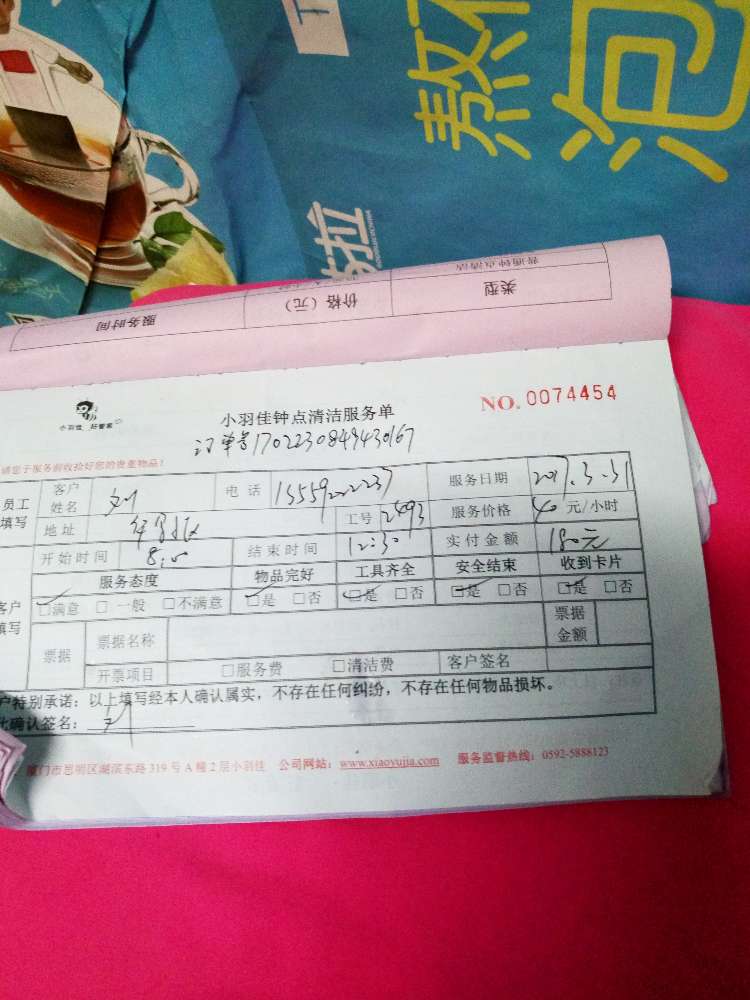 熬
泡
拉
普通钟点清洁
类型
价格（元）
服务时间
小羽佳 好管家
小羽佳钟点清洁服务单
NO. 0074454
订单号1702230849430167
请您于服务前收拾好您的贵重物品！
员工填写
客户姓名 刘 电话 15559222237 服务日期 2017.3.31
地址 工号 2493 服务价格 40 元/小时
开始时间 8:00 结束时间 12:30 实付金额 180元
服务态度 物品完好 工具齐全 安全结束 收到卡片
客户填写
□满意 □一般 □不满意 □是 □否 □是 □否 □是 □否 □是 □否
票据 票据名称 票据金额
开票项目 □服务费 □清洁费 客户签名
户特别承诺：以上填写经本人确认属实，不存在任何纠纷，不存在任何物品损坏。
此确认签名： 刘
厦门市思明区湖滨东路319号A幢2层小羽佳 公司网站：www.xiaoyujia.com 服务监督热线：0592-5888123